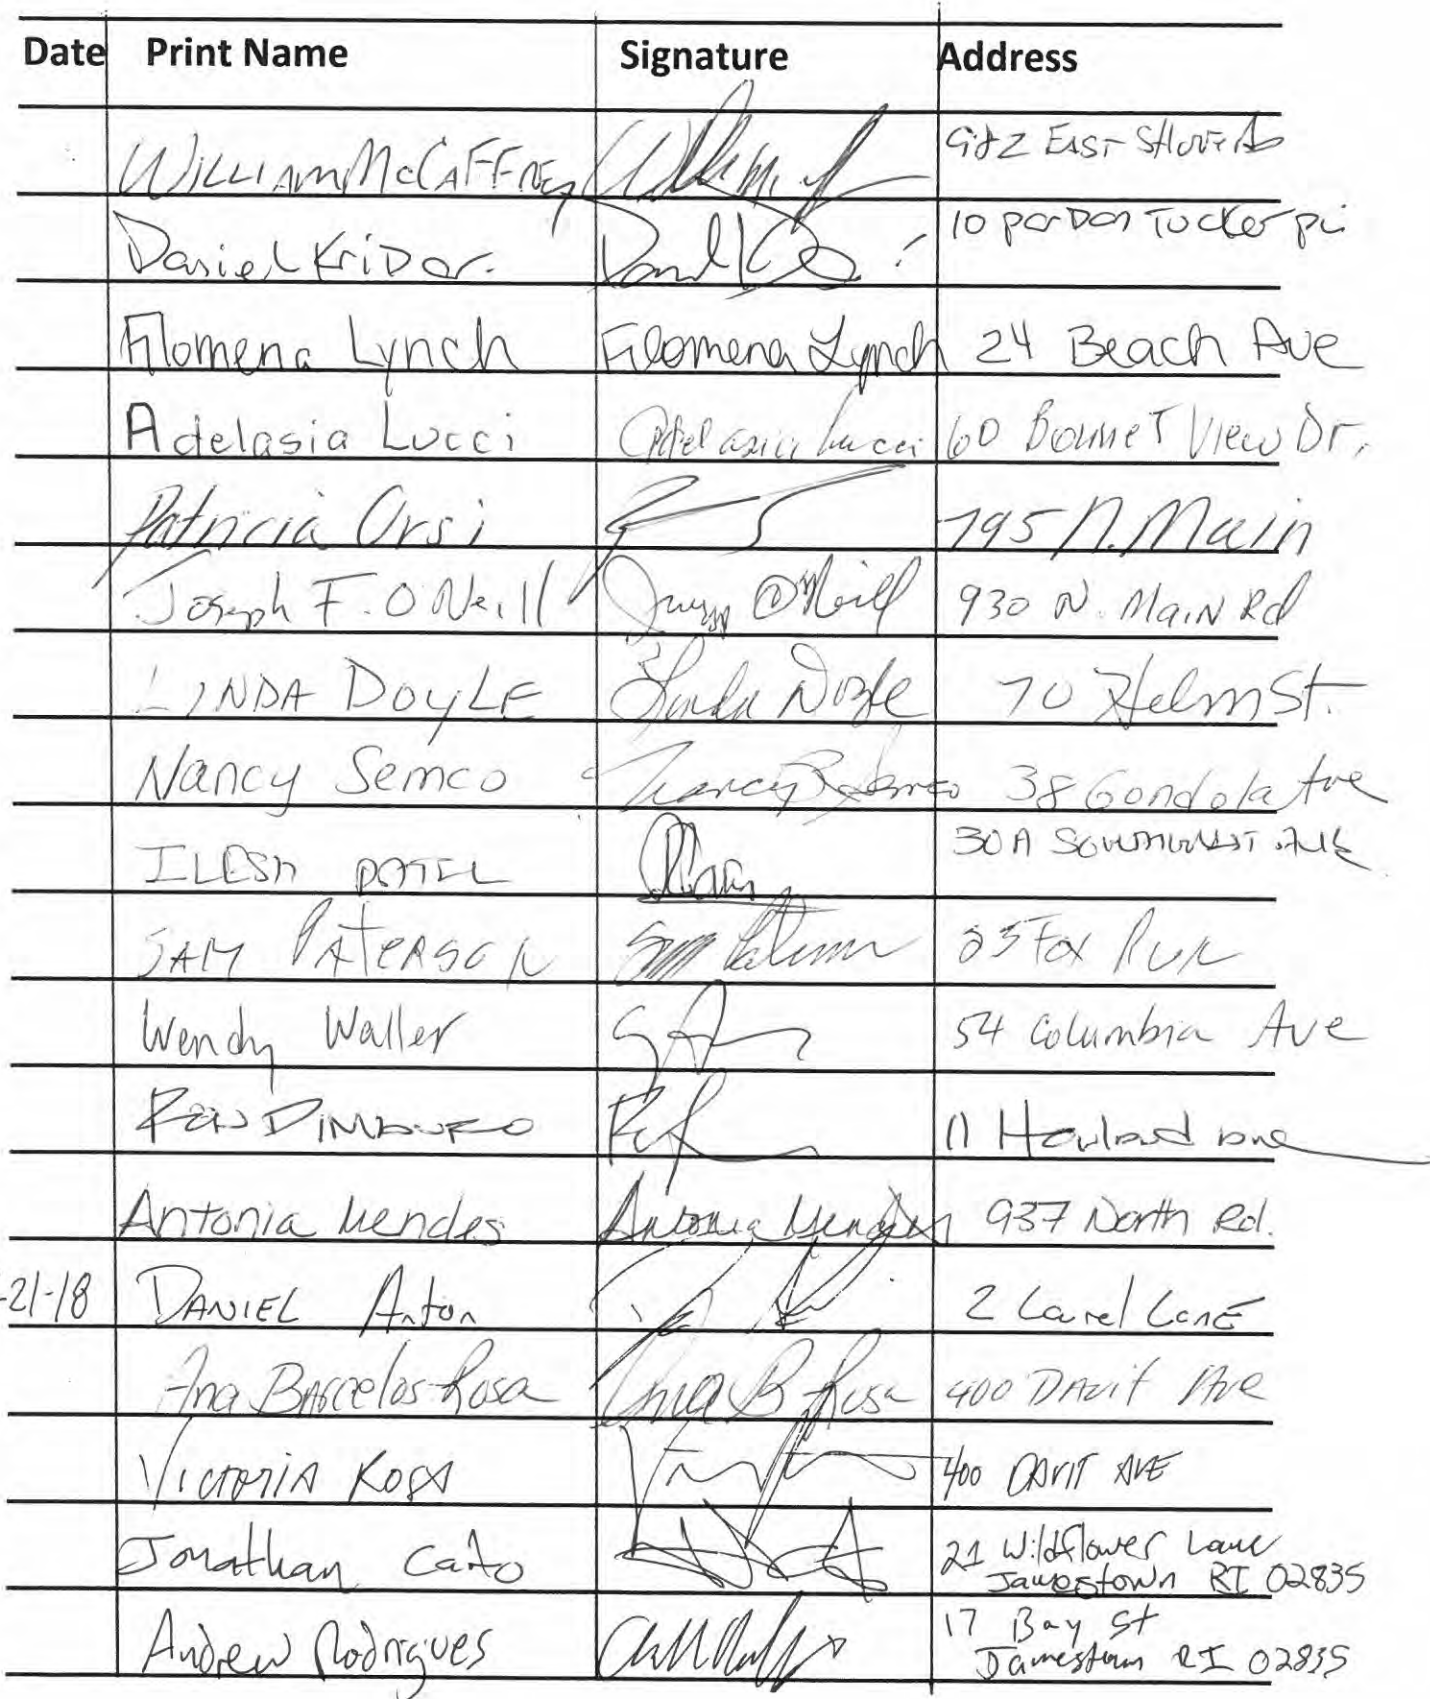 Date Print Name Signature Address
WILLIAM McCAFFREY 982 EAST SHORE Rd
Daniel KriDer. 10 parDon Tucker pl
Filomena Lynch Filomena Lynch 24 Beach Ave
Adelasia Lucci Adelasia Lucci 60 Bonnet View Dr.
Patricia Orsi 795 N. Main
Joseph F. O Neill O'Neill 930 N. Main Rd
LINDA DOYLE Linda Doyle 70 Helm St.
Nancy Semco Nancy Semco 38 Gondola Ave
ILESH PATEL 30A SOUTHWEST AVE
SAM PATERSON Sam Paterson Fox Run
Wendy Waller 54 Columbia Ave
RON 11 Howland ave
Antonia Mendes Antonia Mendes 937 North Rd.
-21-18 DANIEL Anton 2 Laurel LanE
Ana BARcelos-Rosa Ana B Rosa 400 DAvit Ave
VICTORIA ROSA 400 DAVIT AVE
Jonathan Cato 21 Wildflower Lane
Jamestown RI 02835
Andrew Rodrigues 17 Bay St
Jamestown RI 02835